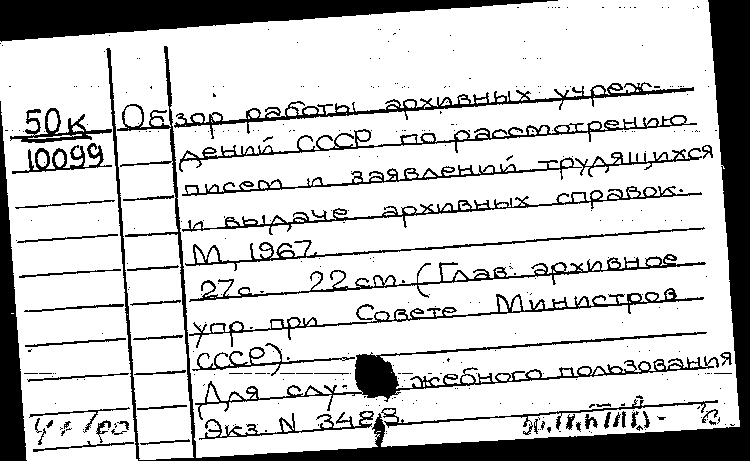 50к
10099
Обзор работы архивных учреж-
дений СССР по рассмотрению
писем и заявлений трудящихся
и выдаче архивных справок.
М., 1967.
27с. 22 см. (Глав. архивное
упр. при Совете Министров
СССР).
Для служебного пользования
Экз. N 3488.